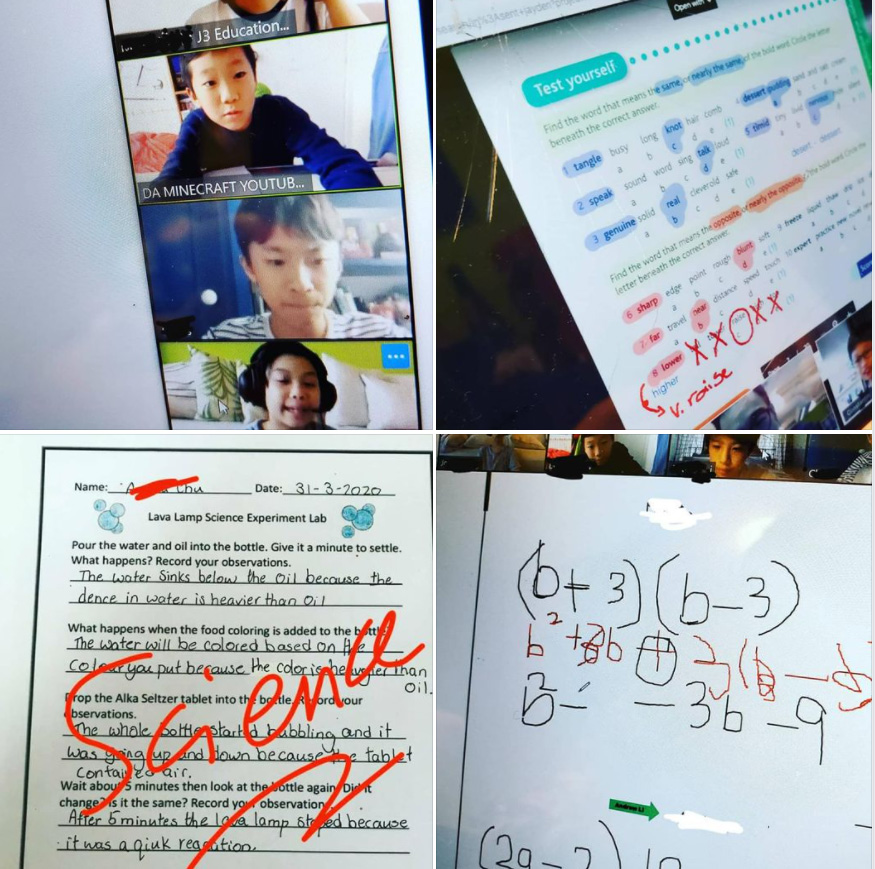 J3 Education...
DA MINECRAFT YOUTUB...
Open with
Test yourself
Find the word that means the same or nearly the same of the bold word. Circle the letter
beneath the correct answer.
1 tangle busy long knot hair comb
a b c d e (1)
2 speak sound word sing talk loud
a b c d e (1)
3 genuine solid real clever old safe
a b c d e (1)
4 dessert pudding sand
5 timid tiny loud nervous
desert - dessert
Find the word that means the opposite or nearly the opposite of the bold word. Circle the
letter beneath the correct answer.
6 sharp edge point rough blunt soft
a b c d e (1)
7 far travel near distance speed touch
a b c d e (1)
8 lower
higher
X X O X X
v. raise
9 freeze liquid thaw
10 expert practice new novice
Name: Chu Date: 31-3-2020
Lava Lamp Science Experiment Lab
Pour the water and oil into the bottle. Give it a minute to settle.
What happens? Record your observations.
The water Sinks below the oil because the
dence in water is heavier than Oil
What happens when the food coloring is added to the bottle
The water will be colored based on the
Colour you put because the color is heavier than
oil.
Drop the Alka Seltzer tablet into the bottle. Record your
observations.
The whole bottle started bubbling and it
was going up and down because the tablet
contained air.
Wait about 5 minutes then look at the bottle again. Did it
change? Is it the same? Record your observation
After 5 minutes the lava lamp stoped because
it was a qiuk reaction.
Science
(b+3)(b-3)
b² +3b
b² - -3b -9
Andrew Li